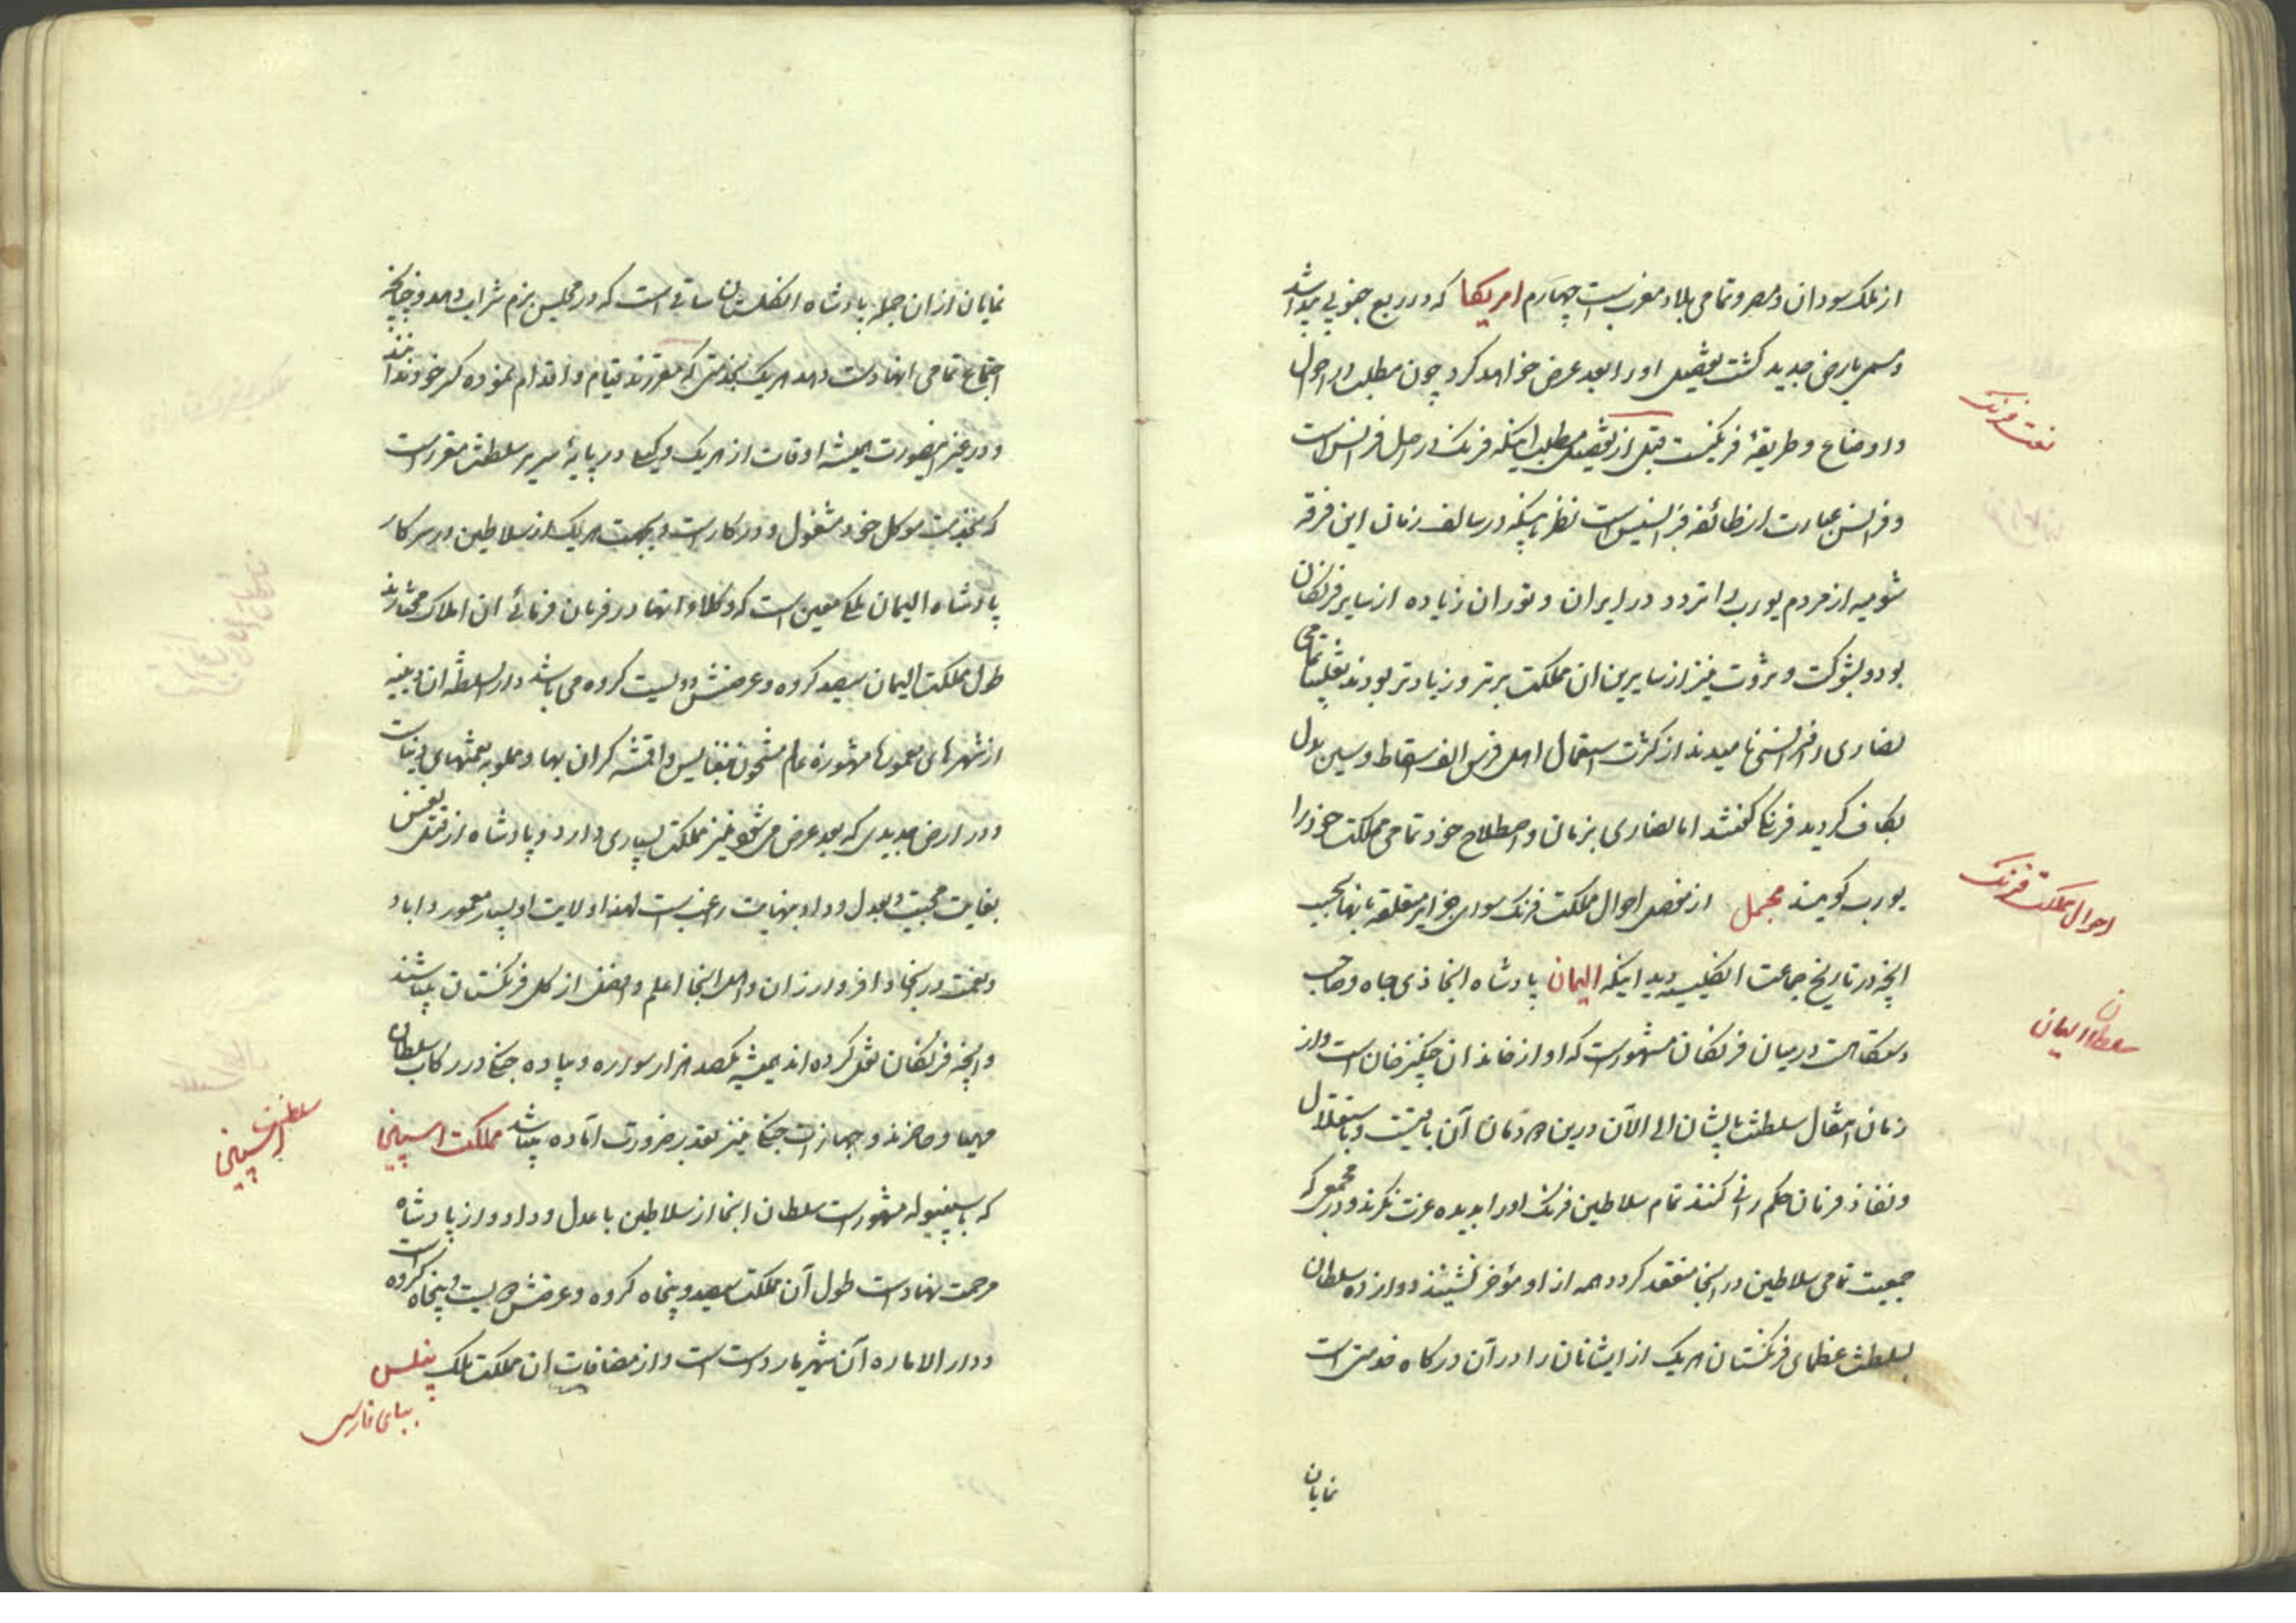 از ملک سودان و مصر و تمامی بلاد مغرب است چهارم امریکا که در ربع جنوبی پیدا شد
و مسمی بارض جدید کشت بتفصیل او را بعد عرض خواهد کرد چون مطلب در احوال
و اوضاع و طریقهٔ فرنکست قبل از تفصیل مطلب اینکه فرنک در اصل فرانس است
لغت فرنک
و فرانس عبارت از طائفه فرانسیس است نظر باینکه در سالف زمان این فرقه
شومیه از مردم یورب را تردد در ایران و توران زیاده از سایر فرنکان
بود و بشوکت و ثروت نیز از سایرین ان مملکت برتر و زیادتر بودند تغلیبا تمامی
نصاری را فرانس نامیدند از کثرت استعمال اهل فرس الف اسقاط و سین بدل
بکاف کردید فرنک کفتند اما نصاری بزبان و اصطلاح خود تمامی مملکت خود را
یورب کویند مجمل از مفصل احوال مملکت فرنک سوای جزایر متعلقه بانها بحسب
احوال مملکت فرنک
انچه در تاریخ جماعت انکلیسیه دید اینکه الیمان پادشاه انجا ذی جاه و صاحب
سلطان الیمان
دستکاهست در میان فرنکان مشهور است که او از خاندان چنکیز خان است و از
زمان انتقال سلطنت بایشان الی الآن درین دودمان آن باقیست و باستقلال
و نفاذ فرمان حکمرانی کنند تمام سلاطین فرنک او را بدیده عزت نکرند و در مجمعی که
جمعیت تمامی سلاطین در انجا منعقد کردد همه از او مؤخر نشینند دوازده سلطان
بسلطنت عظمای فرنکستان هریک از ایشانان را در آن درکاه خدمتی است
نمایان
نمایان از ان جمله پادشاه انکلستان ساقی است که در مجلس بزم شراب دهد و چنانچه
اجتماع تمامی انها دست دهد هریک بخدمتی که مقررند قیام و اقدام نموده کسر خود ندانند
و در غیر اینصورت همیشه اوقات از هریک وکیلی در پایهٔ سریر سلطنت مقرر است
که بخدمت موکل خود مشغول و در کار است و بجهت هریک از سلاطین در سرکار
پادشاه الیمان ملکی معین است که وکلاء انها در فرمان فرمائی ان املاک مختارند
طول مملکت الیمان سیصد کروه و عرضش دویست کروه می باشد دار السلطنه ان وینیه
از شهرهای معموره مشهورهٔ عالم مشحون بنفایس و اقمشه کران بها و مملو بنعمتهای دنیاست
و در ارض جدیدی که بعد عرض می شود نیز مملکت بسیاری دارد و پادشاه از قتل نفس
بغایت مجتنب و بعدل و داد بنهایت راغب است لهذا ولایت او بسیار معمور و اباد
و نعمت در انجا وافر و ارزان و اهل انجا اعلم و افضل از کل فرنکستان میباشند
و انچه فرنکان نقل کرده اند همیشه یکصد هزار سواره و پیاده جنکی در رکاب سلطان
مهیا و حاضرند و جهازات جنکی نیز بقدر ضرورت آماده میباشد مملکت اسپینیا
سلطنت اسپینیا
که باسپنیوله مشهور است سلطان انجا از سلاطین با عدل و داد و از پادشاه
مرحمت نهاد است طول آن مملکت سیصد و پنجاه کروه و عرضش دویست و پنجاه کروه است
و دار الاماره آن شهر مادرد است و از مضافات ان مملکت ملک پنلس
ببای فارسی